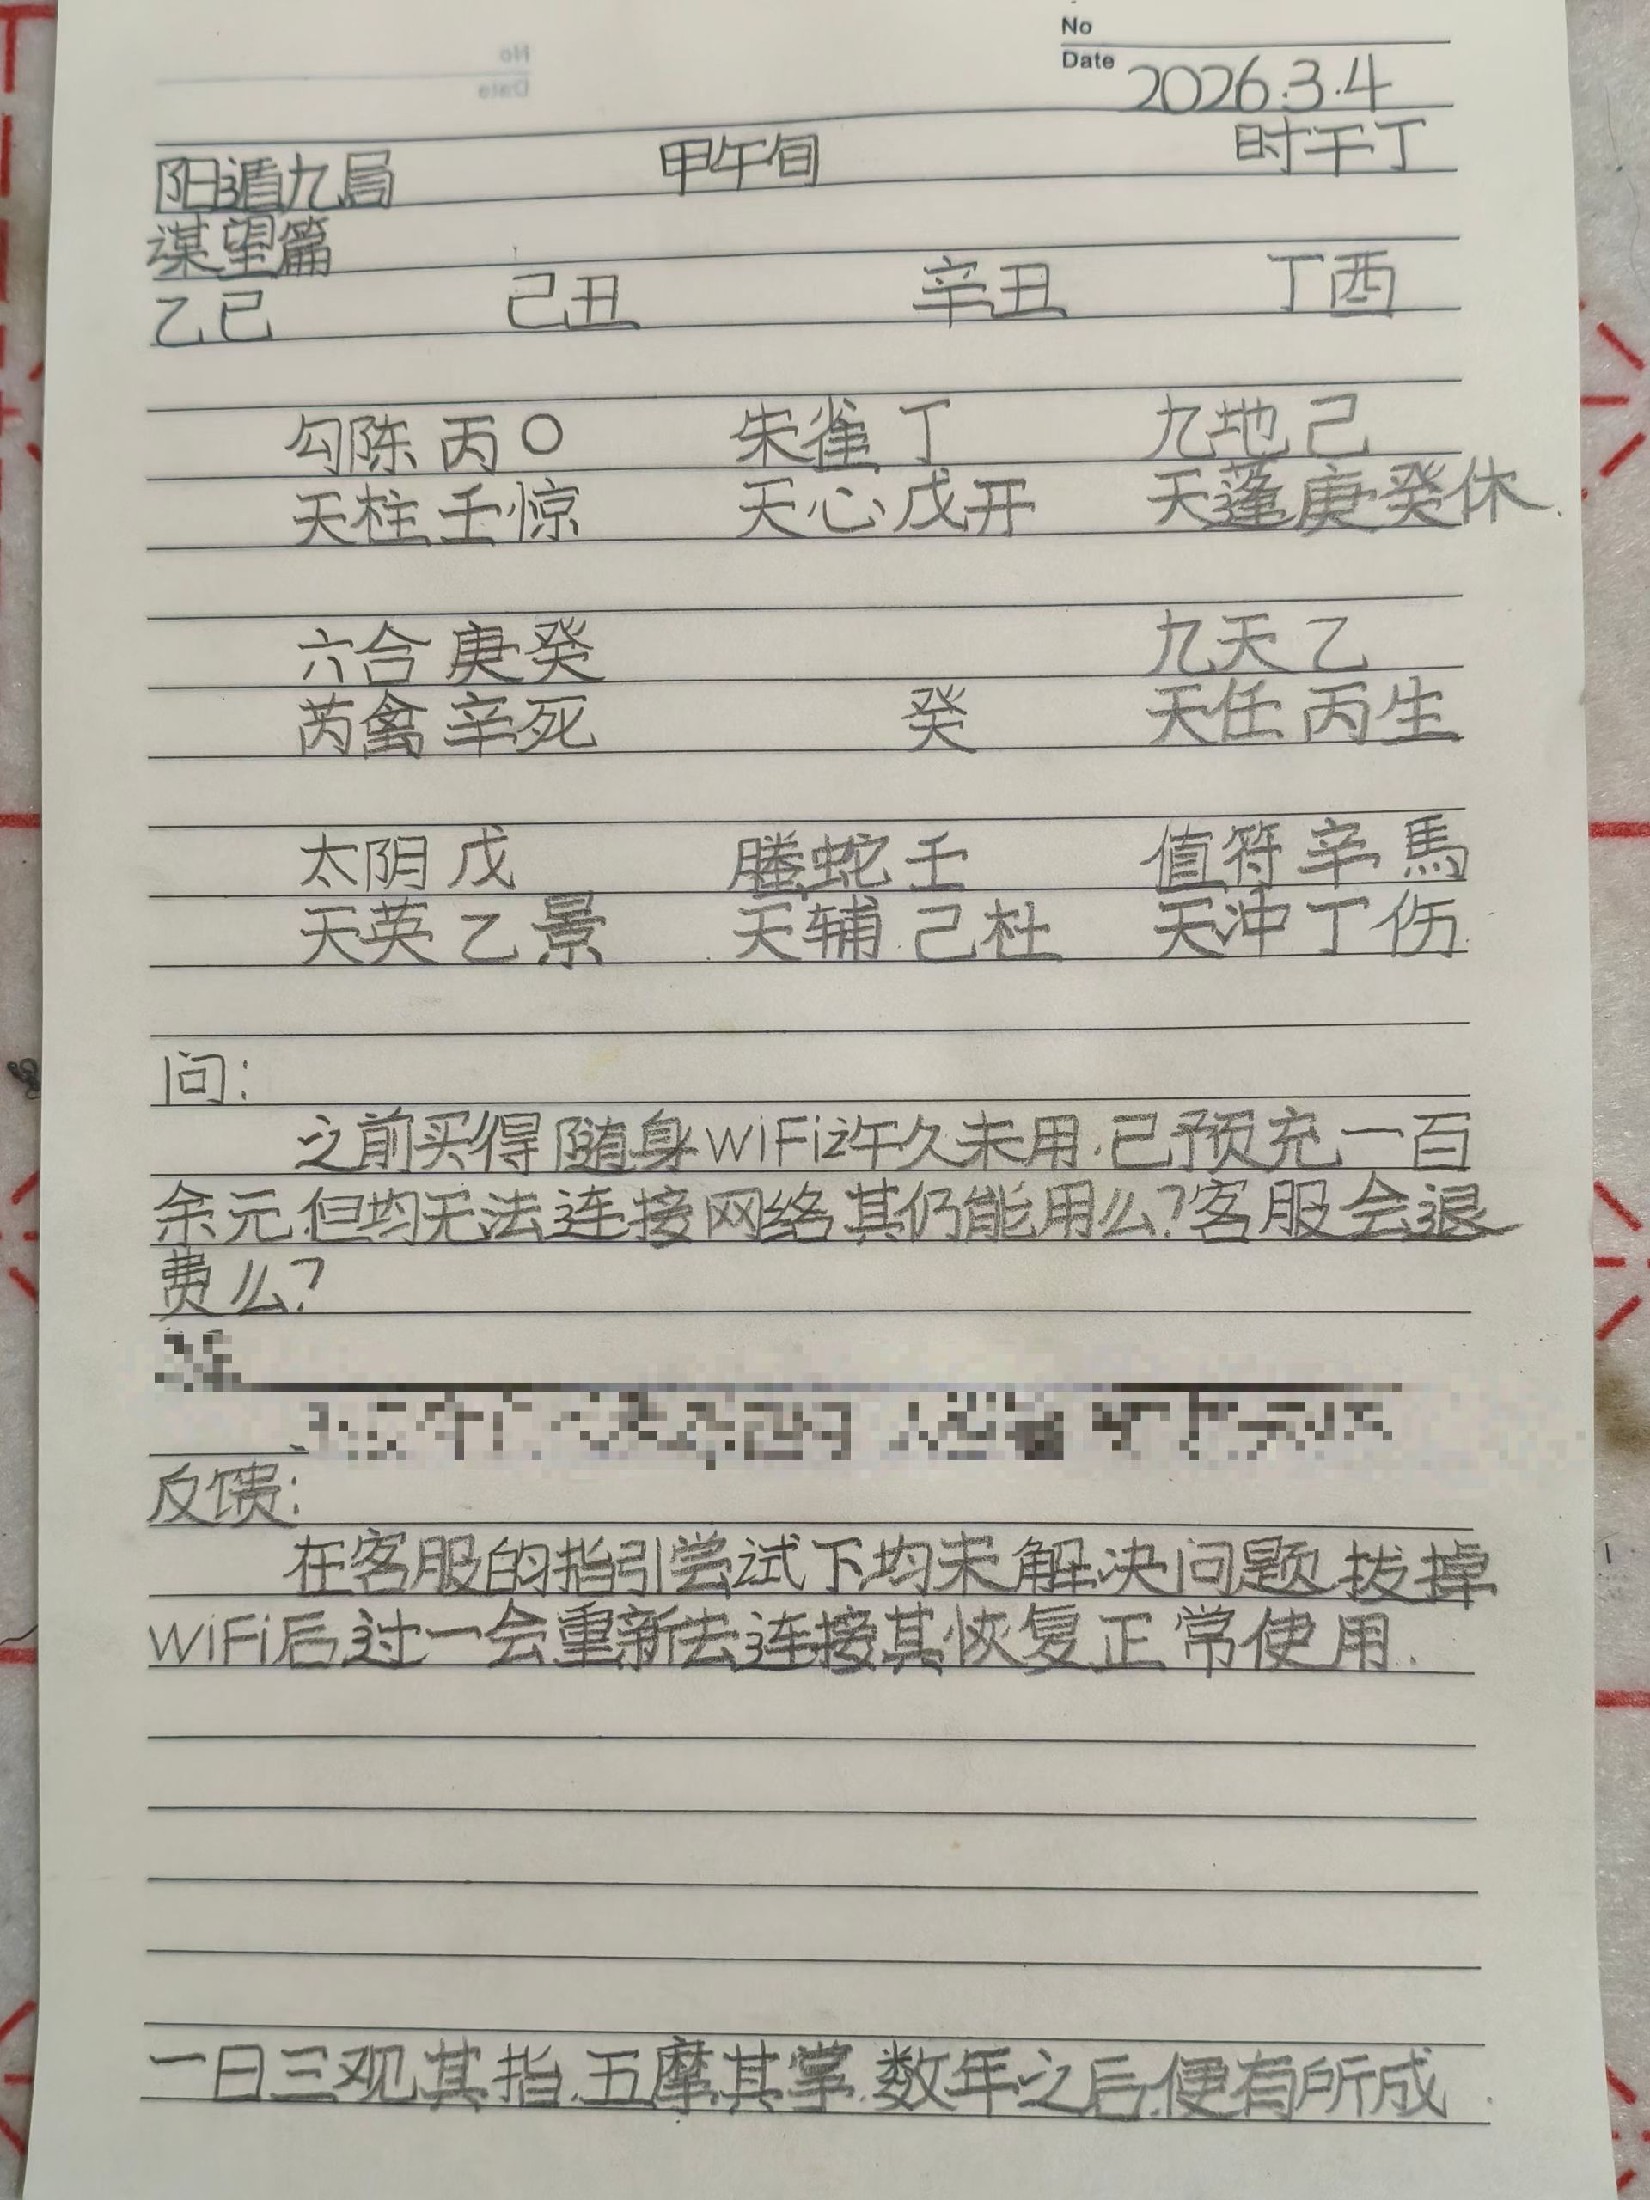 No
Date 2026.3.4
阳遁九局 甲午旬 时干丁
谋望篇
乙巳 己丑 辛丑 丁酉
勾陈 丙 〇 朱雀 丁 九地 己
天柱 壬 惊 天心 戊 开 天蓬 庚 癸 休
六合 庚 癸 九天 乙
芮禽 辛 死 癸 天任 丙 生
太阴 戊 螣蛇 壬 值符 辛 馬
天英 乙 景 天辅 己 杜 天冲 丁 伤
问:
之前买得随身WiFi许久未用.已预充一百
余元.但均无法连接网络.其仍能用么?客服会退
费么?
反馈:
在客服的指引尝试下均未解决问题.拔掉
WiFi后过一会重新去连接其恢复正常使用.
一日三观其指.五摩其掌.数年之后.便有所成.